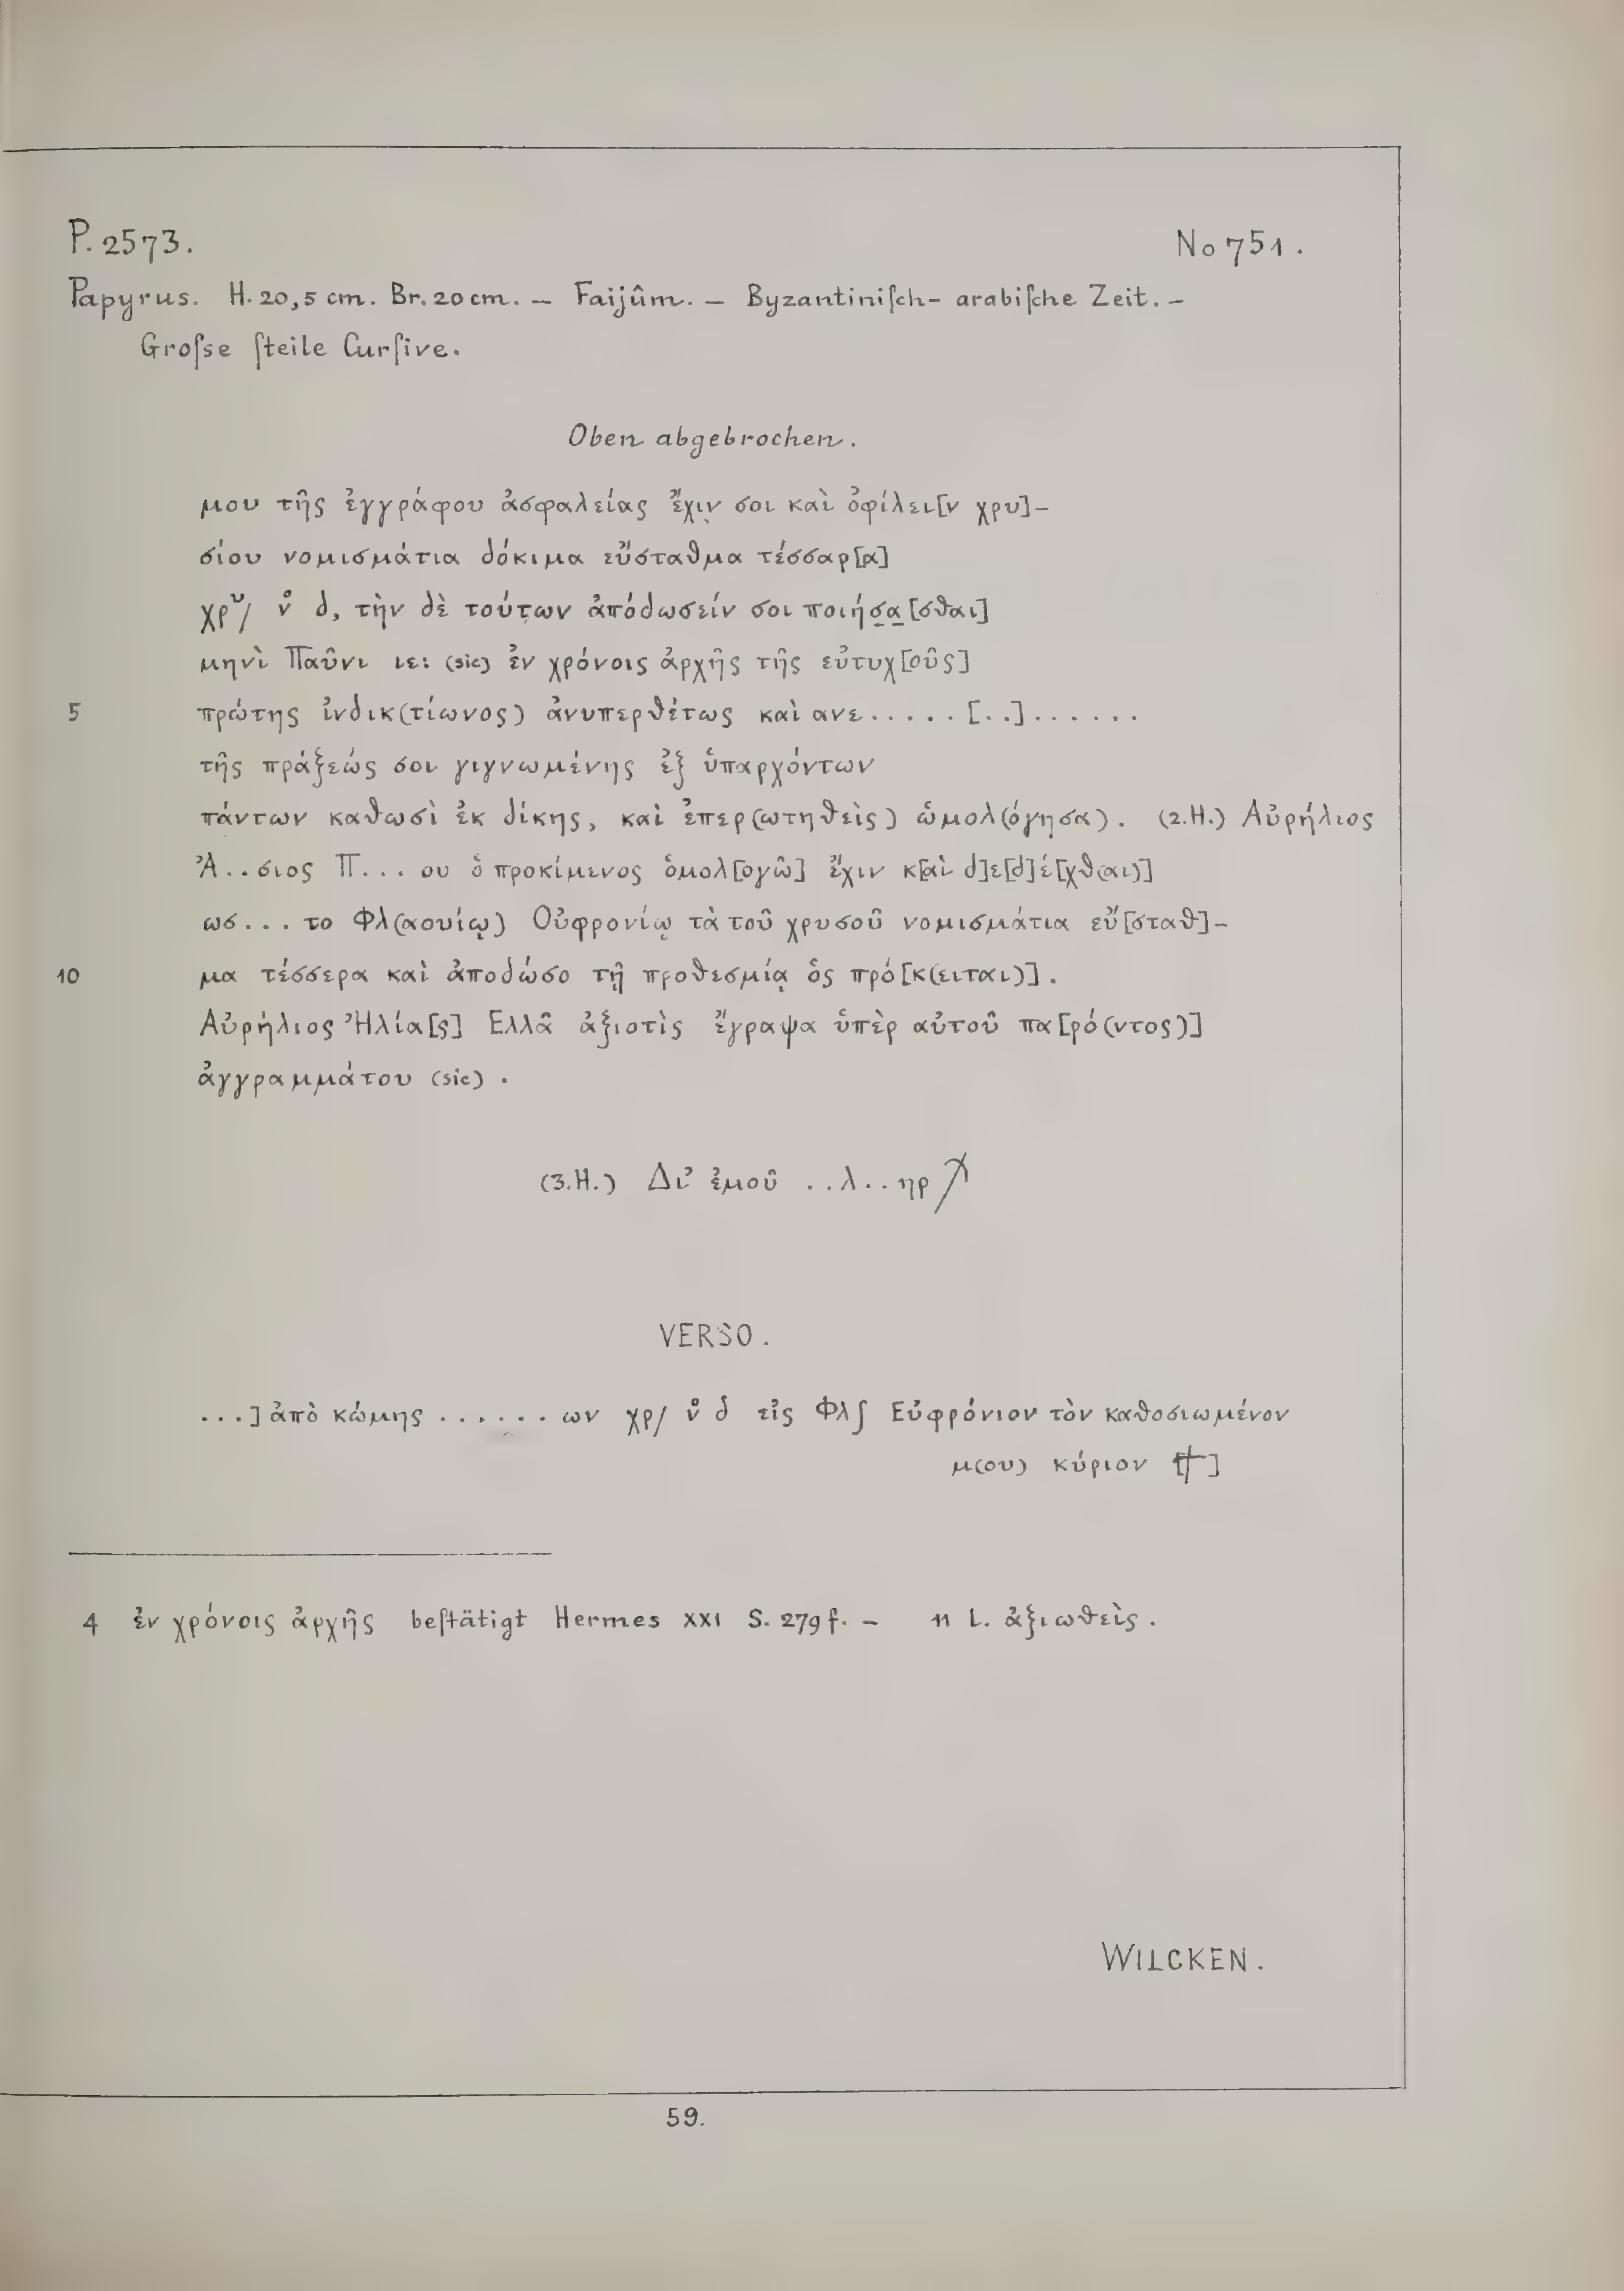 P. 2573. No 751.
Papyrus. H. 20,5 cm. Br. 20 cm. – Faijûm. – Byzantiniſch-arabiſche Zeit. –
Groſse ſteile Curſive.
Oben abgebrochen.
μου τῆς ἐγγράφου ἀσφαλείας ἔχιν σοι καὶ ὀφίλει[ν χρυ]-
σίου νομισμάτια δόκιμα εὔσταθμα τέσσαρ[α]
χρυ/ νο δ, τὴν δὲ τούτων ἀπόδωσείν σοι ποιήσα[σθαι]
μηνὶ Παῦνι ιε: (sic) ἐν χρόνοις ἀρχῆς τῆς εὐτυχ[οῦς]
5 πρώτης ἰνδικ(τίωνος) ἀνυπερθέτως καὶ ανε.....[..]......
τῆς πράξεώς σοι γιγνωμένης ἐξ ὑπαρχόντων
πάντων καθωσὶ ἐκ δίκης, καὶ ἐπερ(ωτηθεὶς) ὡμολ(όγησα). (2.H.) Αὐρήλιος
Ἀ..σιος Π...ου ὁ προκίμενος ὁμολ[ογῶ] ἔχιν κ[αὶ δ]ε[δ]έ[χθ(αι)]
ωσ...το Φλ(αουίῳ) Οὐφρονίῳ τὰ τοῦ χρυσοῦ νομισμάτια εὔ[σταθ]-
10 μα τέσσερα καὶ ἀποδώσο τῇ προθεσμίᾳ ὁς πρό[κ(ειται)].
Αὐρήλιος Ἠλία[ς] Ελλᾶ ἀξιοτὶς ἔγραψα ὑπὲρ αὐτοῦ πα[ρό(ντος)]
ἀγγραμμάτου (sic).
(3.H.) Δι' ἐμοῦ ..λ..ηρ
VERSO.
...] ἀπὸ κώμης ......ων χρ/ νο δ εἰς Φλ∫ Εὐφρόνιον τὸν καθοσιωμένον
μ(ου) κύριον [⳨]
4 ἐν χρόνοις ἀρχῆς beſtätigt Hermes XXI S. 279 f. – 11 L. ἀξιωθεὶς.
WILCKEN.
59.